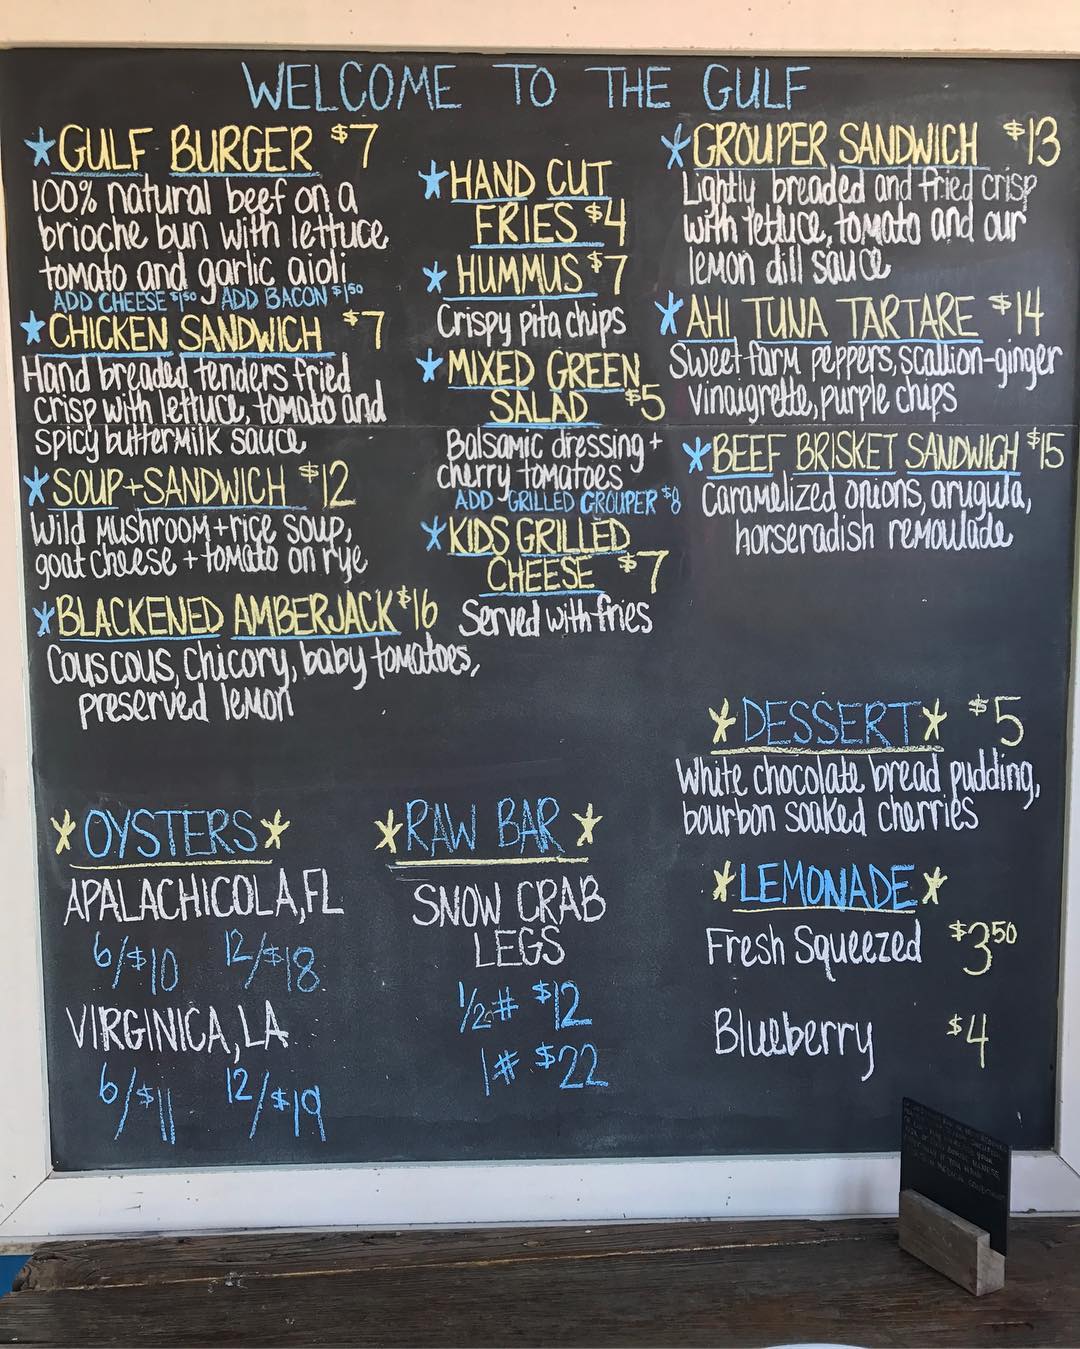 WELCOME TO THE GULF
GULF BURGER $7
100% natural beef on a
brioche bun with lettuce
tomato and garlic aioli
ADD CHEESE $150 ADD BACON $150
CHICKEN SANDWICH $7
Hand breaded tenders fried
crisp with lettuce, tomato and
spicy buttermilk sauce
SOUP+SANDWICH $12
Wild mushroom+rice soup,
goat cheese + tomato on rye
BLACKENED AMBERJACK $16
Couscous, Chicory, baby tomatoes,
preserved lemon
HAND CUT
FRIES $4
HUMMUS $7
Crispy pita chips
MIXED GREEN
SALAD $5
Balsamic dressing +
cherry tomatoes
ADD GRILLED GROUPER $8
KIDS GRILLED
CHEESE $7
Served with fries
GROUPER SANDWICH $13
Lightly breaded and fried crisp
with lettuce, tomato and our
lemon dill sauce
AHI TUNA TARTARE $14
Sweet farm peppers, scallion-ginger
vinaigrette, purple chips
BEEF BRISKET SANDWICH $15
Caramelized onions, arugula,
horseradish remoulade
OYSTERS
APALACHICOLA, FL
6/$10 12/$18
VIRGINICA, LA
6/$11 12/$19
RAW BAR
SNOW CRAB
LEGS
1/2# $12
1# $22
DESSERT $5
White chocolate bread pudding,
bourbon soaked cherries
LEMONADE
Fresh Squeezed $350
Blueberry $4